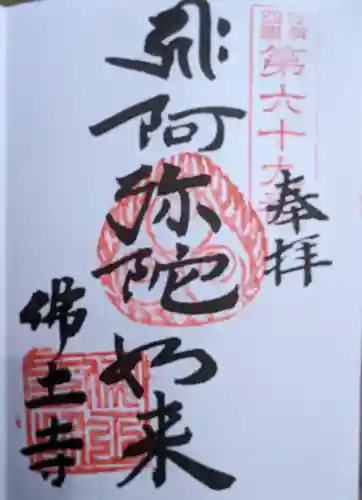 四國
第六十九
奉拝
阿弥陀如来
佛土寺